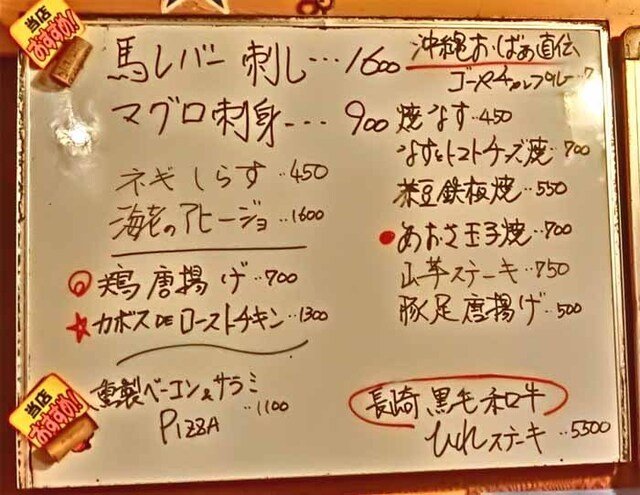 当店
おすすめ!
馬レバー刺し…1600
マグロ刺身…900
ネギしらす‥450
海老のアヒージョ‥1600
鶏唐揚げ‥700
カボスDEローストチキン‥1300
当店
おすすめ!
燻製ベーコン&サラミ
PIZZA ‥1100
沖縄おばぁ直伝
ゴーヤチャンプルー
焼なす‥450
なすとトマトチーズ焼‥700
納豆鉄板焼‥550
あおさ玉子焼‥700
山芋ステーキ‥750
豚足唐揚げ‥500
長崎黒毛和牛
ひれステーキ‥5500